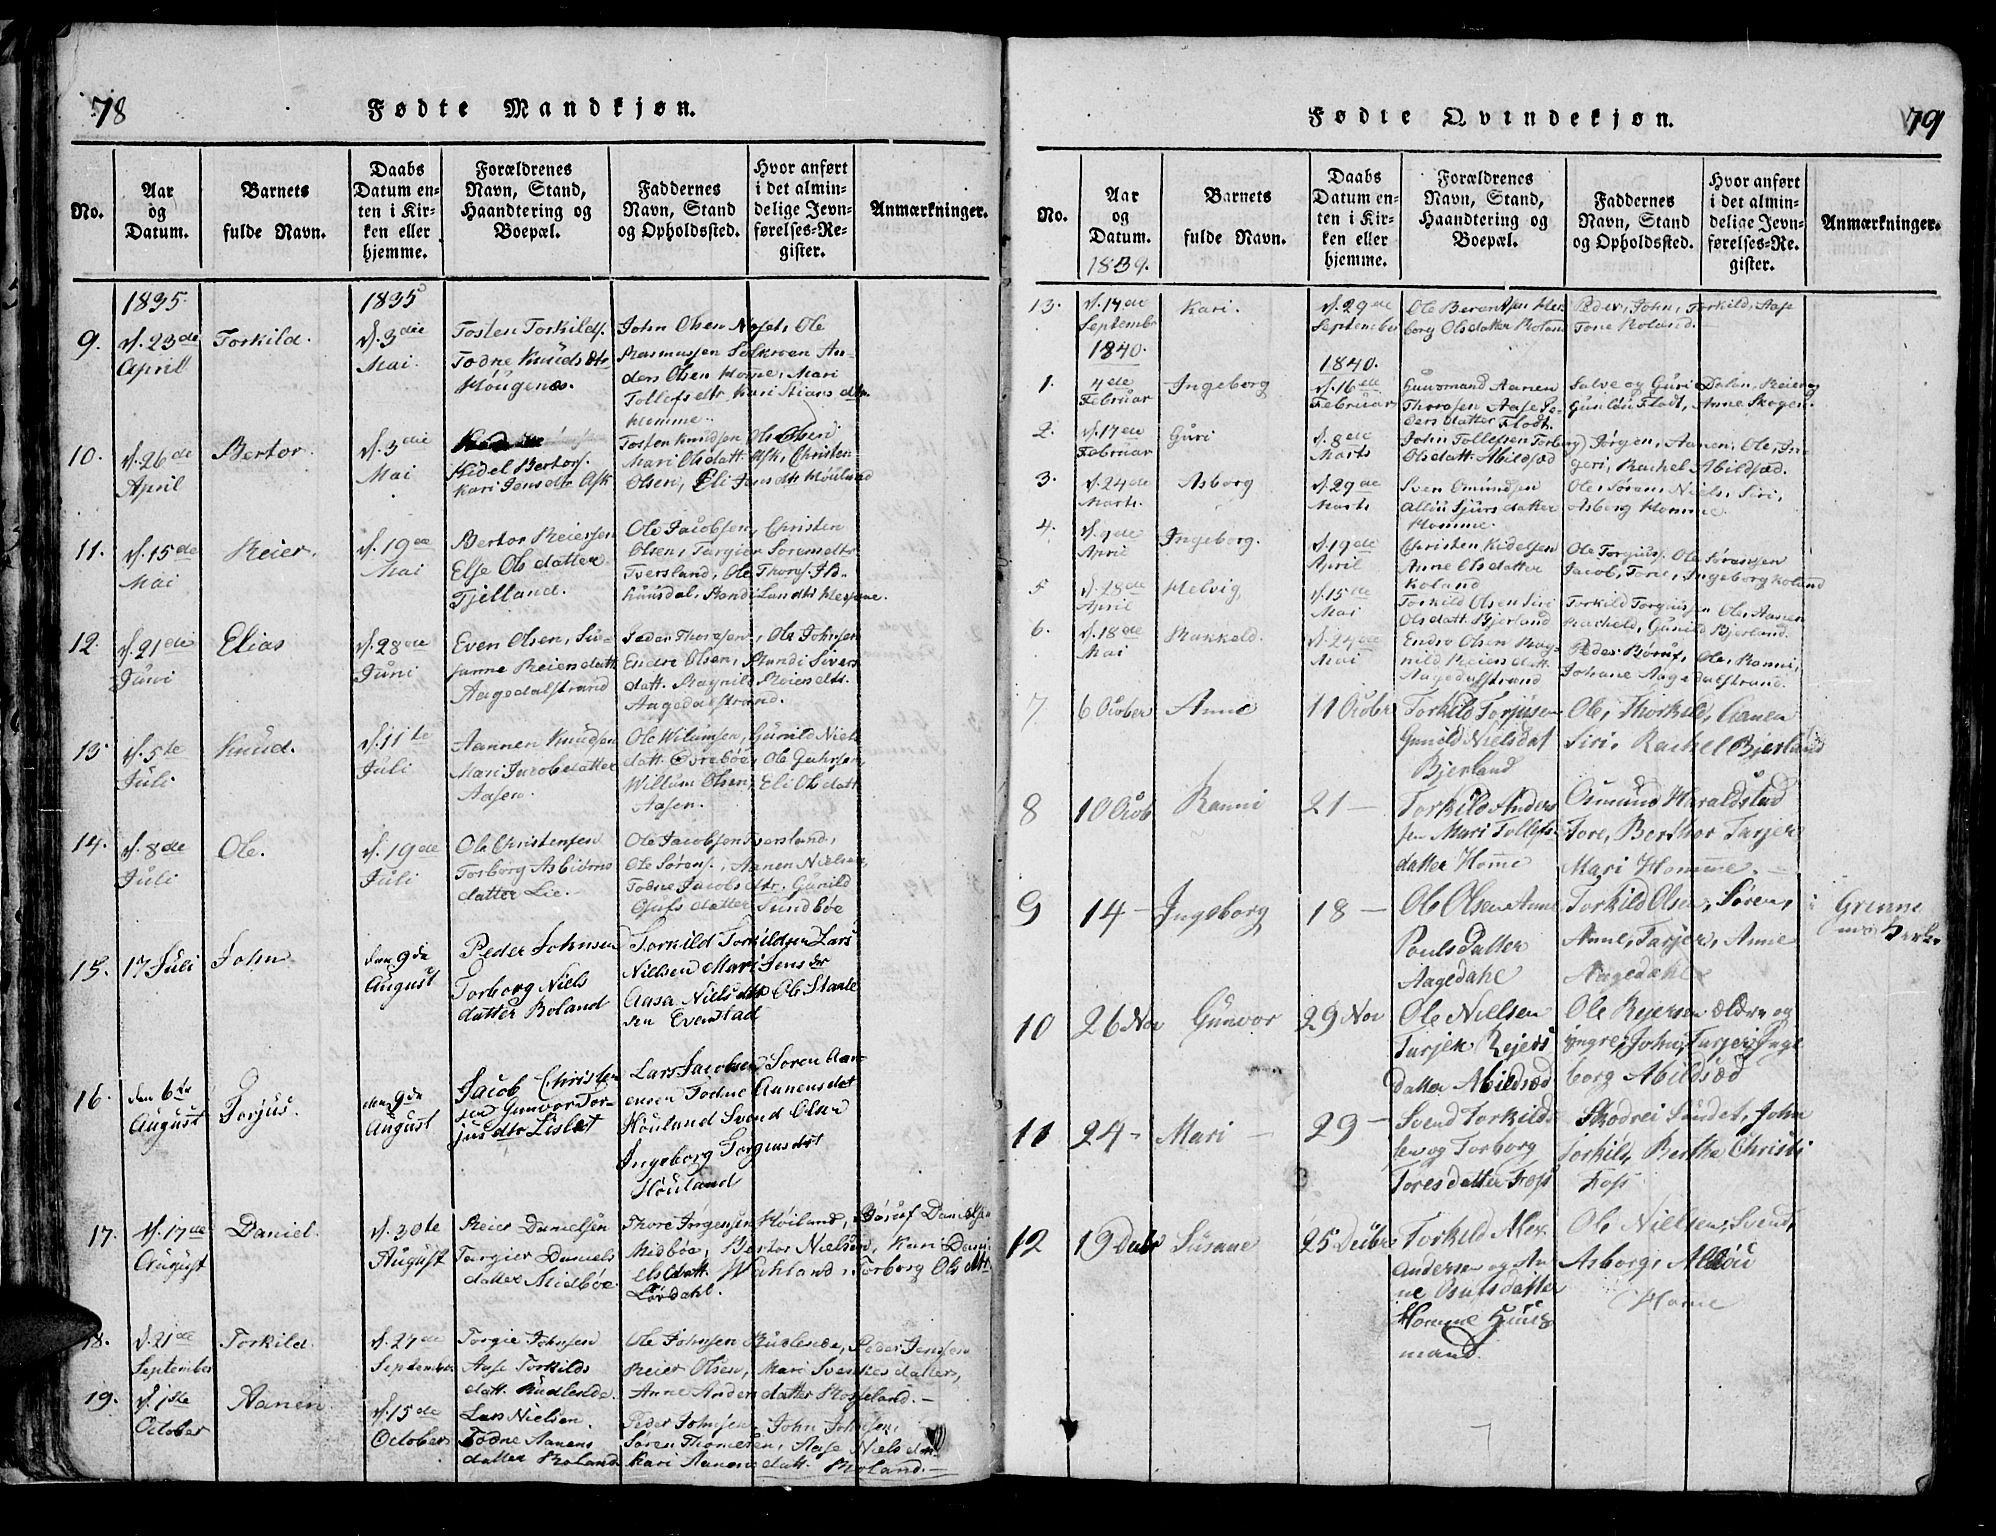 78
Fødte Mandkjøn.
No.
Aar og Datum.
Barnets fulde Navn.
Daabs Datum enten i Kirken eller hjemme.
Forældrenes Navn, Stand, Haandtering og Boepæl.
Faddernes Navn, Stand og Opholdssted.
Hvor anført i det almindelige Jevnførelses-Register.
Anmærkninger.
1835.
1835
9.
d. 23de April
Torkild.
d. 3die Mai.
Tosten Torkilds.
Todne Knudsdtr
Höugenes.
John Olsen Ole
Rasmussen An-
ders Olsen Homme, Mari
Tollefsdtr Kari Stians dtr.
Homme.
10.
d. 26de April
Bertor.
d. 3die Mai
Kidel Bertors.
Kari Jensdtr Ask
Tosten Knudsen Ole Olsen
Mari Olsdatt. Ask, Christen
Olsen, Eli Jensdtr Höuland
11.
d. 15de Mai
Reier.
d. 19de Mai
Bertor Reiersen
Else Olsdatter
Fjelland.
Ole Jacobsen, Christen
Olsen, Targier Sorensdtr
Tversland, Ole Thors.
12.
d. 21de Juni
Elias
d. 28de Juni
Even Olsen, Su-
sanne Reiersdatt.
Aagedalstrand
Peder Thorsen, Ole Johnsen
Endre Olsen, Randi Sivers
datt. Ragnild Reiersdtr.
Aagedalstrand.
13
d. 5te Juli
Knud.
d. 11te Juli
Aannen Knudsen
Mari Jacobsdatter
Aasen.
Ole Wilumsen, Gunild Niels
datt. Øvrebøe, Ole
Willum Olsen, Eli Olsdatt
Aasen.
14.
d. 8de Juli
Ole.
d. 19de Juli
Ole Christensen
Torborg Asbiørns
datter Lie.-
Ole Jacobsen Tversland,
Ole Sørens., Aanen Nielsen,
Todne Jacobsdtr. Gunild
datter Sundbøe
15.
17 Juli
John
den 9de August
Peder Johnsen
Torborg Niels
datter Roland
Torkild Torkildsen Lars
Nielsen Mari Jensdtr
Aasa Nielsdtr Ole Staale
sen Evenstad
16.
den 6te August
Torjus.
den 9de August
Jacob Christen
sen Gunvor Tor-
jusdtr Lislet
Lars Jacobsen Soren Aan-
ensen Todne Aanensdat
Höuland Svend Olsen
Ingeborg Torgiusdat
Höuland
17.
d. 17de August
Daniel.
d. 30te August
Reier Danielsen
Targier Daniels
datter Midbøe.
Thore Jorgensen Höiland, Böruf Danielsen
Midbøe, Bertor Nielsen, Kari Dani-
elsdatt. Wehland, Torborg Olsdtr
Lördahl.
18.
d. 21de September
Torkild.
d. 27de September
Torgie Johnsen
Aase Torkilds
datt. Rudlende.
Ole Johnsen Rudlende, Peder Jensen
Reier Olsen, Mari Svenkesdatter,
Anne Andersdatter Rosseland.-
19.
d. 1ste October
Aanen.
d. 15de October
Lars Nielsen.
Todne Aanens
datter Roland
Peder Johnsen, John Johnsen,
Søren Thomesen, Aase Nielsdtr
Kari Aanensdatt. Roland.-
79
Fødte Qvindekjøn.
No.
Aar og Datum.
Barnets fulde Navn.
Daabs Datum enten i Kirken eller hjemme.
Forældrenes Navn, Stand, Haandtering og Boepæl.
Faddernes Navn, Stand og Opholdssted.
Hvor anført i det almindelige Jevnførelses-Register.
Anmærkninger.
1839.
13.
September
Kari.
d. 29de September
Ole Berentsen
borg Olsdatter Roland
Peder, John, Torkild, Aase
Tone Roland.
1840.
1840.
1.
4de Februar
Ingeborg
d. 16de Februar
Huusmand Aanen
Thorsen Aase Pe-
ders datter Flodt.
Salve og Guri Dalen, Reier og
Gunlöu Flodt, Anne Skogen.
2.
d. 17de Februar
Guri
d. 8de Marts
John Tollefsen Torborg
Olsdatt. Abildsæd
Jörgen, Aanen, Ole, In-
geri, Rachel Abildsæd.
3.
d. 24de Marts.
Asborg
d. 29de Marts
Sven Omundsen
Allöu Sjursdatter
Homme.
Ole, Søren, Niels, Siri,
Asberg Homme
4.
April
Ingeborg.
d. 19de April
Christen Kidelsen
Anne Olsdatter
Roland
Ole Torgius. Ole Sørensen
Jacob, Tone, Ingeborg Roland
5
d. 28de April
Helvig
d. 15de Mai
Torkild Olsen Siri
Olsdatt. Bjerland
Torkild Torgiussen Ole, Aanen
Racheld, Gunild Bjerland.
6.
d. 18de Mai
Rakkeld.
d. 24de Mai
Endre Olsen Rag-
nild Reiersdatt.
Aagedalstrand
Peder Röruf, Ole, Ranni,
Johane Aagedalstrand.
7
6 Ocober
Anne
11 Ocobr
Torkild Torjusen
Gunild Nielsdat
Bjerland
Ole, Thorkild, Aanen
Siri, Rachel Bjerland
8
10 Ocob
Ranni
21 -
Torkild Anders
sen Mari Tollefs-
datter Homme
Osmund Haraldstad
Tore, Berthor Tarjer
Mari Homme. -
9
14 -
Ingeborg
18 -
Ole Olsen Anne
Poulsdatter
Aagedahl
Torkild Olsen, Søren,
Anne, Tarjer, Anne
Aagedahl
i Grenne
Kirke
10
26 Nov
Gunvor
29 Nov
Ole Nielsen
Tarjer Rejers
datter Abildsæd
Ole Rejersen ældre og
yngre, John, Tarjer, Inge
borg Abildsæd
11
24 -
Mari -
29 -
Svend Torkild-
sen og Torborg
Toresdatter Foss
Skodrei Sundet, John
Torkild, Berthe Christi
Foss
12
19 Decbr
Susane
25 Decbr
Torkild Alex-
andersen og An
ne Knutsdatter
Homme Huus
mand.
Ole Nielsen, Svend,
Asborg, Allöu
Home